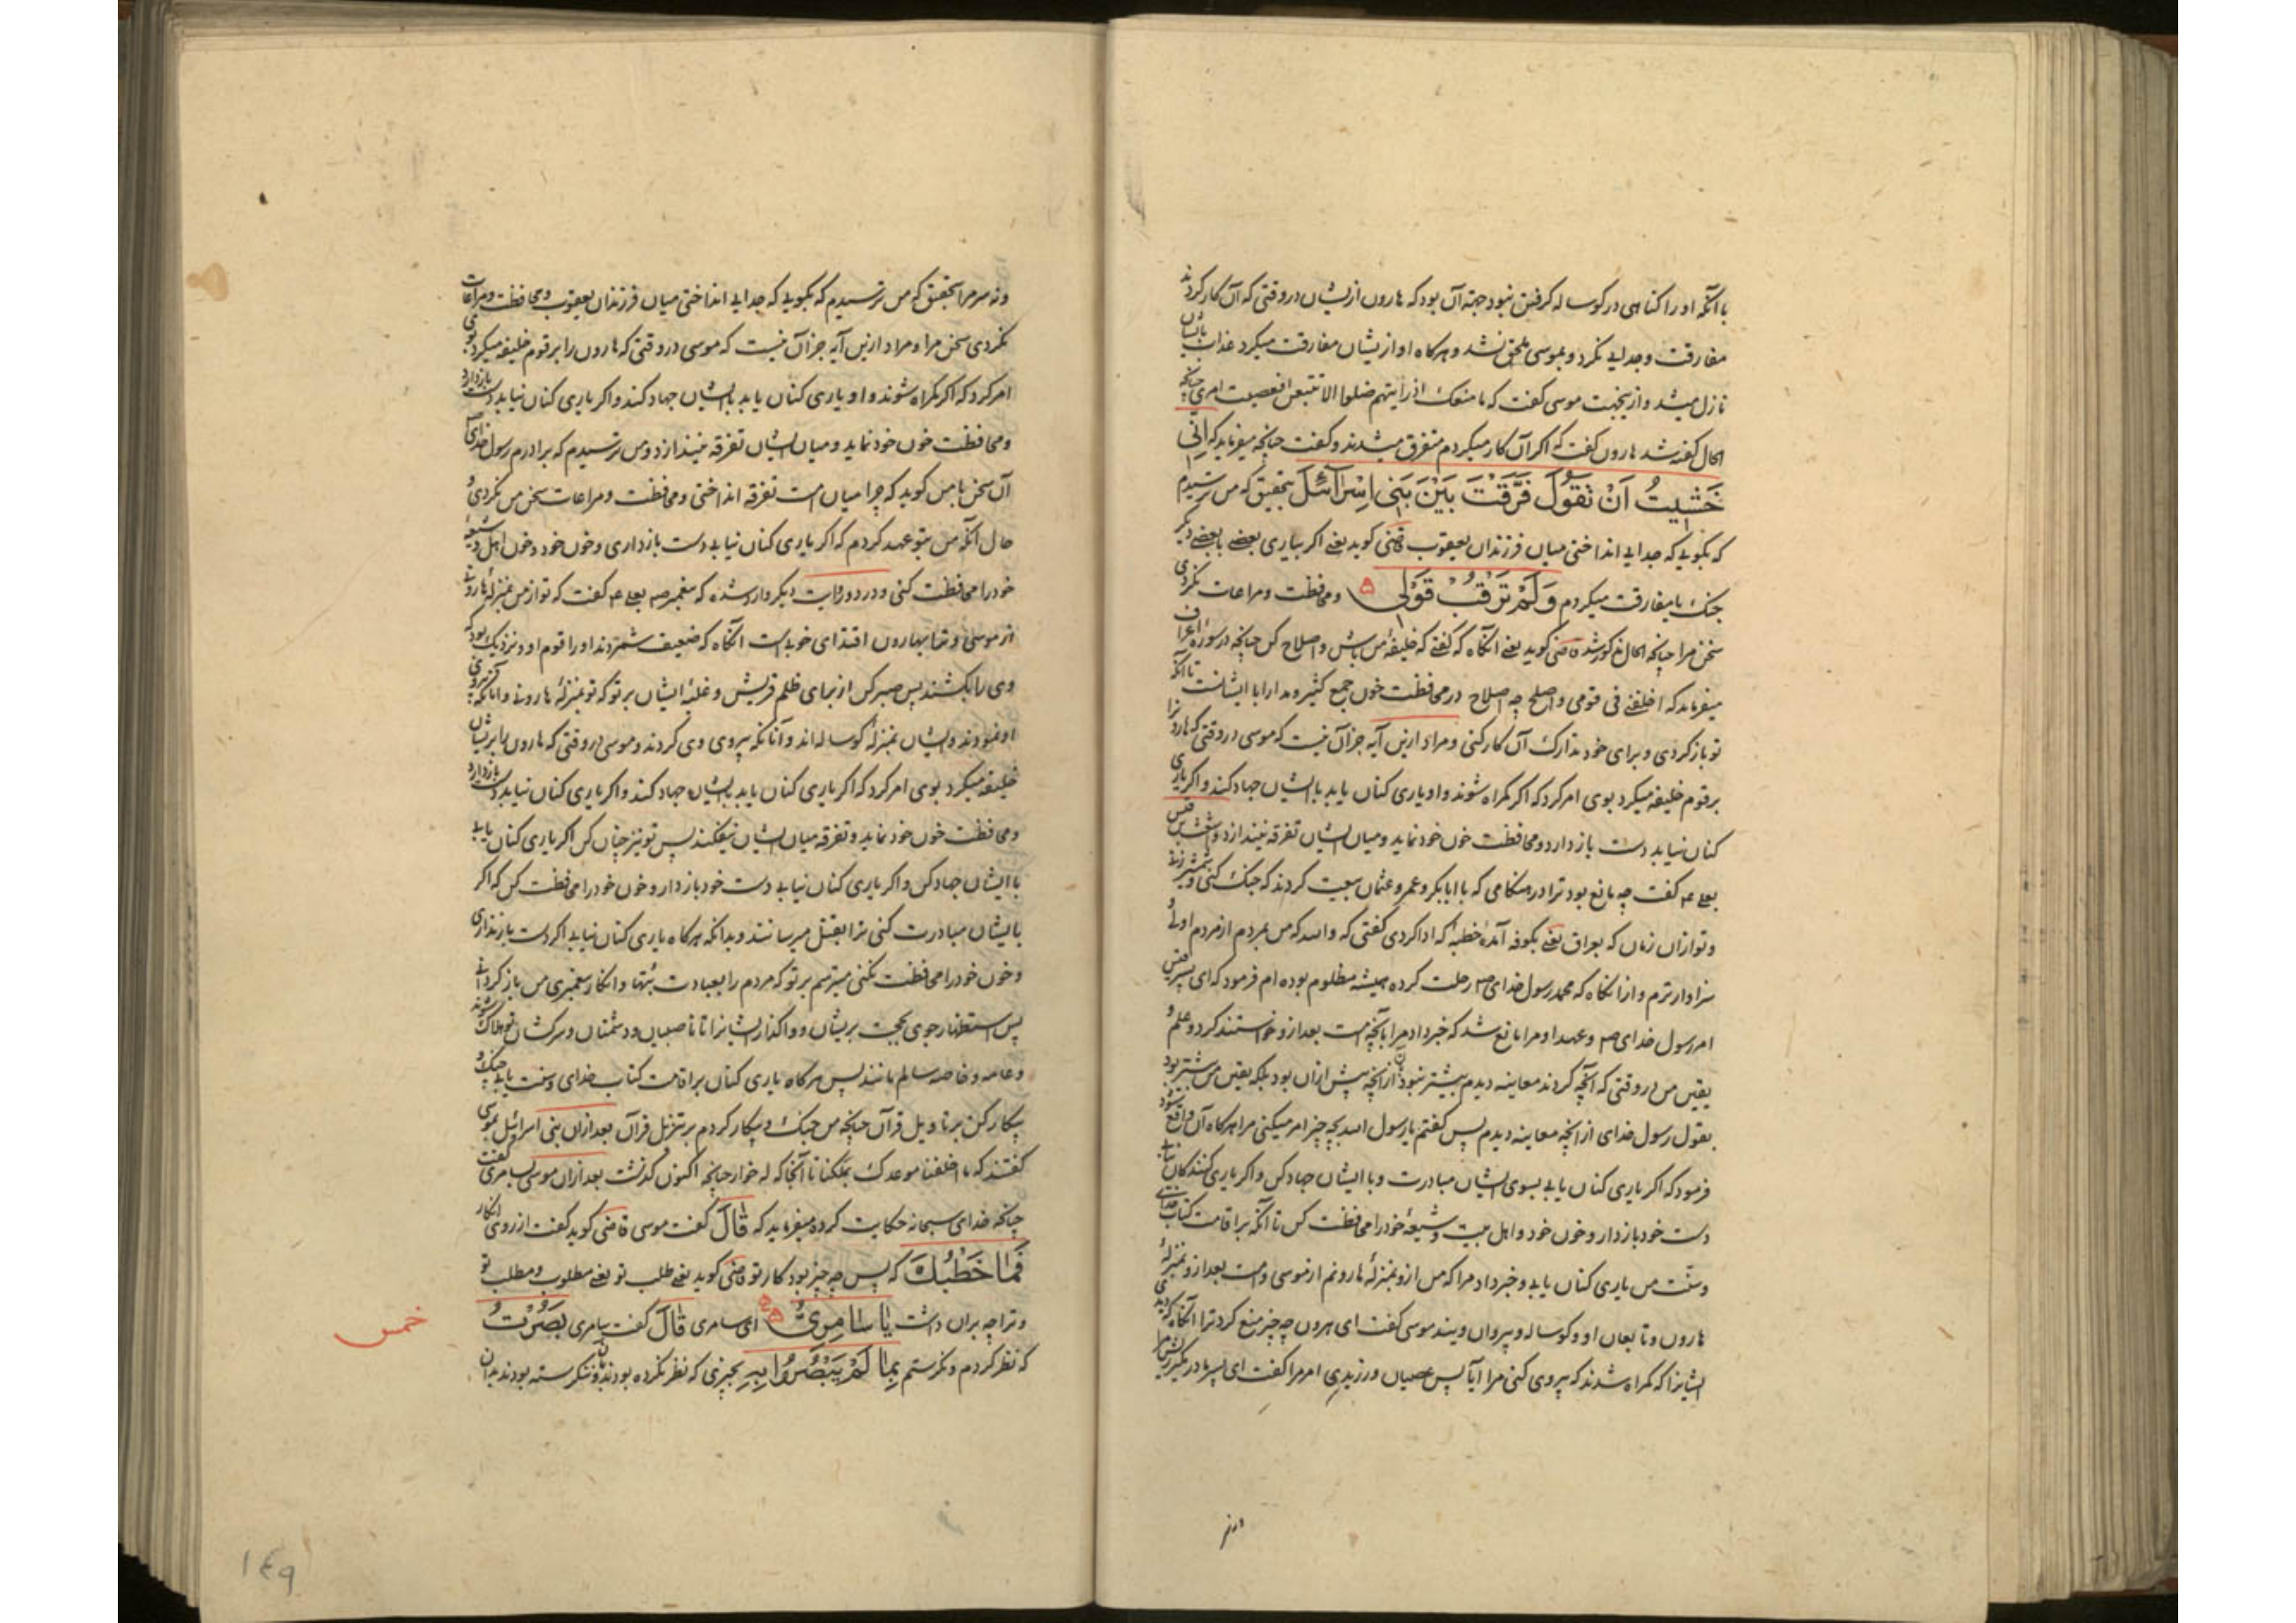 با آنکه او را کناهی در کوساله کرفتن نبود جهة آن بود که هارون ازیشان در وقتی که آن کار کردند
مفارقت و جدایی نکرد و بموسی ملحق نشد و هرکاه او ازیشان مفارقت میکرد عذاب بایشان
نازل میشد و ازینجهت موسی کفت که ما منعک اذ رایتهم ضلوا الا تتبعن افعصیت امری چنانچه
الحال کفته شد هارون کفت که اکر آن کار میکردم متفرق میشدند و کفت چنانچه میفرماید که اِنّی
خَشیتُ اَنْ تَقُولَ فَرَّقْتَ بَیْنَ بَنی اِسْرآئلَ بتحقیق که من ترسیدم
که بکویی که جدایی انداختی میان فرزندان یعقوب قمی کوید یعنی اکر بیاری بعضی با بعضی دیکر
جنک یا مفارقت میکردم وَلَمْ تَرْقُبْ قَوْلی ۵ و محافظت و مراعات نکردی
سخن مرا چنانچه الحال مذکور شد قمی کوید یعنی آنکاه که کفتی که خلیفهٔ من باش و اصلاح کن چنانچه در سورهٔ اعراف
میفرماید که اخلفنی فی قومی و اصلح چه اصلاح در محافظت خون جمع کثیر و مدارا با ایشانست تا آنکه
تو باز کردی و برای خود تدارک آن کار کنی و مراد ازین آیه جز آن نیست که موسی در وقتی که هارون را
بر قوم خلیفه میکرد بوی امر کرد که اکر کمراه شوند و او یاری کنان یابد با ایشان جهاد کند و اکر یاری
کنان نیابد دست باز دارد و محافظت خون خود نماید و میان ایشان تفرقه نیندازد و اشعث بن قیس
بعلی ع کفت چه مانع بود ترا در هنکامی که با ابابکر و عمر و عثمان بیعت کردند که جنک کنی و شمشیر زنی
و تو از آن زمان که بعراق یعنی بکوفه آمدهٔ خطبهٔ که ادا کردی کفتی که والله که من بمردم از مردم اولی و
سزاوارترم و از آنکاه که محمد رسول خدای ص رحلت کرده همیشه مظلوم بوده ام فرمود که ای پسر قیس
امر رسول خدای ص و عهد او مرا مانع شد که خبر داد مرا بآنچه امت بعد ازو خواستند کرد و علم و
یقین من در وقتی که آنچه کردند معاینه دیدم بیشتر نبود از آنچه پیش از آن بود بلکه یقین من بیشتر بود
بقول رسول خدای از آنچه معاینه دیدم پس کفتم یا رسول الله بچه چیز امر میکنی مرا هرکاه آن واقع شود
فرمود که اکر یاری کنان یابی بسوی ایشان مبادرت و با ایشان جهاد کن و اکر یاری کنندکان نیابی
دست خود باز دار و خون خود و اهل بیت و شیعهٔ خود را محافظت کن تا آنکه بر اقامت کتاب خدای
و سنّت من یاری کنان یابی و خبر داد مرا که من ازو بمنزلهٔ هارونم از موسی و امت بعد ازو بمنزلهٔ
هارون و تابعان او و کوساله و پیروان ویند موسی کفت ای هرون چه چیز منع کرد ترا آنکاه که دیدی
ایشانرا که کمراه شدند که پیروی کنی مرا آیا پس عصیان ورزیدی امر مرا کفت ای پسر مادر مکیر ریش مرا
و نه سر مرا بتحقیق که من ترسیدم که بکویی که جدایی انداختی میان فرزندان یعقوب و محافظت و مراعات
نکردی سخن مرا و مراد ازین آیه جز آن نیست که موسی در وقتی که هارون را بر قوم خلیفه میکرد بوی
امر کرد که اکر کمراه شوند و او یاری کنان یابد با ایشان جهاد کند و اکر یاری کنان نیابد دست باز دارد
و محافظت خون خود نماید و میان ایشان تفرقه نیندازد و من ترسیدم که برادرم رسول خدای ص
آن سخن با من کوید که چرا میان امت تفرقه انداختی و محافظت و مراعات سخن من نکردی و
حال آنکه من بتو عهد کردم که اکر یاری کنان نیابی دست باز داری و خون خود و خون اهل و شیعهٔ
خود را محافظت کنی و در روایت دیکر وارد شده که پیغمبر ص بعلی ع کفت که تو از من بمنزلهٔ هارونی
از موسی و ترا بهارون اقتدای خوبست آنکاه که ضعیف شمردند او را قوم او و نزدیک بود که
وی را بکشند پس صبر کن از برای ظلم قریش و غلبهٔ ایشان بر تو که تو بمنزلهٔ هارونی و آنانکه پیروی
او نمودند و ایشان بمنزلهٔ کوساله اند و آنانکه پیروی وی کردند و موسی در وقتی که هارون را بر ایشان
خلیفه میکرد بوی امر کرد که اکر یاری کنان یابد با ایشان جهاد کند و اکر یاری کنان نیابد دست باز دارد
و محافظت خون خود نماید و تفرقه میان ایشان نیفکند پس تو نیز چنان کن اکر یاری کنان یابی
با ایشان جهاد کن و اکر یاری کنان نیابی دست خود باز دار و خون خود را محافظت کن که اکر
بایشان مبادرت کنی ترا بقتل میرسانند و بدانکه هرکاه یاری کنان نیابی اکر دست باز نداری
و خون خود را محافظت نکنی میترسم بر تو که مردم را بعبادت بتها و انکار پیغمبری من باز کردانی
پس استظهار جوی بحجت بریشان و واکذار ایشانرا تا ناصبیان و دشمنان و سرکشان تو هلاک شوند
و عامه و خاصه سالم مانند پس هرکاه یاری کنان بر اقامت کتاب خدای و سنت یابی جنک و
پیکار کن بر تاویل قرآن چنانچه من جنک و پیکار کردم بر تنزیل قرآن بعد از آن بنی اسرائیل بموسی
کفتند که ما اخلفنا موعدک بملکنا تا آنجا که له خوار چنانچه اکنون کذشت بعد از آن موسی بسامری کفت
چنانکه خدای سبحانه حکایت کرده میفرماید که قٰالَ کفت موسی قاضی کوید کفت از روی انکار
فَمٰا خَطْبُکَ که پس چه چیز بود کار تو قاضی کوید یعنی طلب تو یعنی مطلوب و مطلب تو
و ترا چه بر آن داشت یٰا سٰامِرِیُّ ۹۵ ای سامری قٰالَ کفت سامری بَصُرْتُ
که نظر کردم و نکرستم بِمٰا لَمْ یَبْصُرُوا بِهِ بچیزی که نظر نکرده بودند و ننکرسته بودند بدان
خمس
۱۴۹